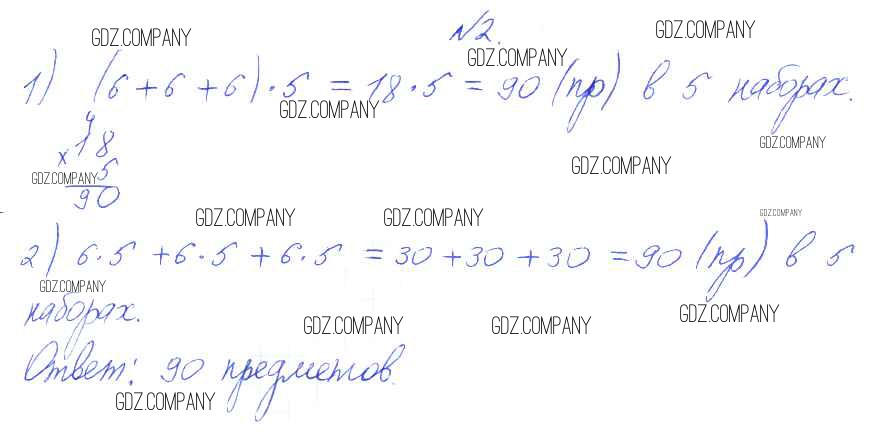 GDZ.COMPANY
№2.
GDZ.COMPANY
GDZ.COMPANY
1) (6 + 6 + 6) · 5 = 18 · 5 = 90 (пр) в 5 наборах.
GDZ.COMPANY
4
x 18
GDZ.COMPANY
GDZ.COMPANY
GDZ.COMPANY 5
90
GDZ.COMPANY GDZ.COMPANY GDZ.COMPANY
2) 6·5 + 6·5 + 6·5 = 30 + 30 + 30 = 90 (пр) в 5
GDZ.COMPANY
наборах.
GDZ.COMPANY GDZ.COMPANY GDZ.COMPANY
Ответ: 90 предметов.
GDZ.COMPANY